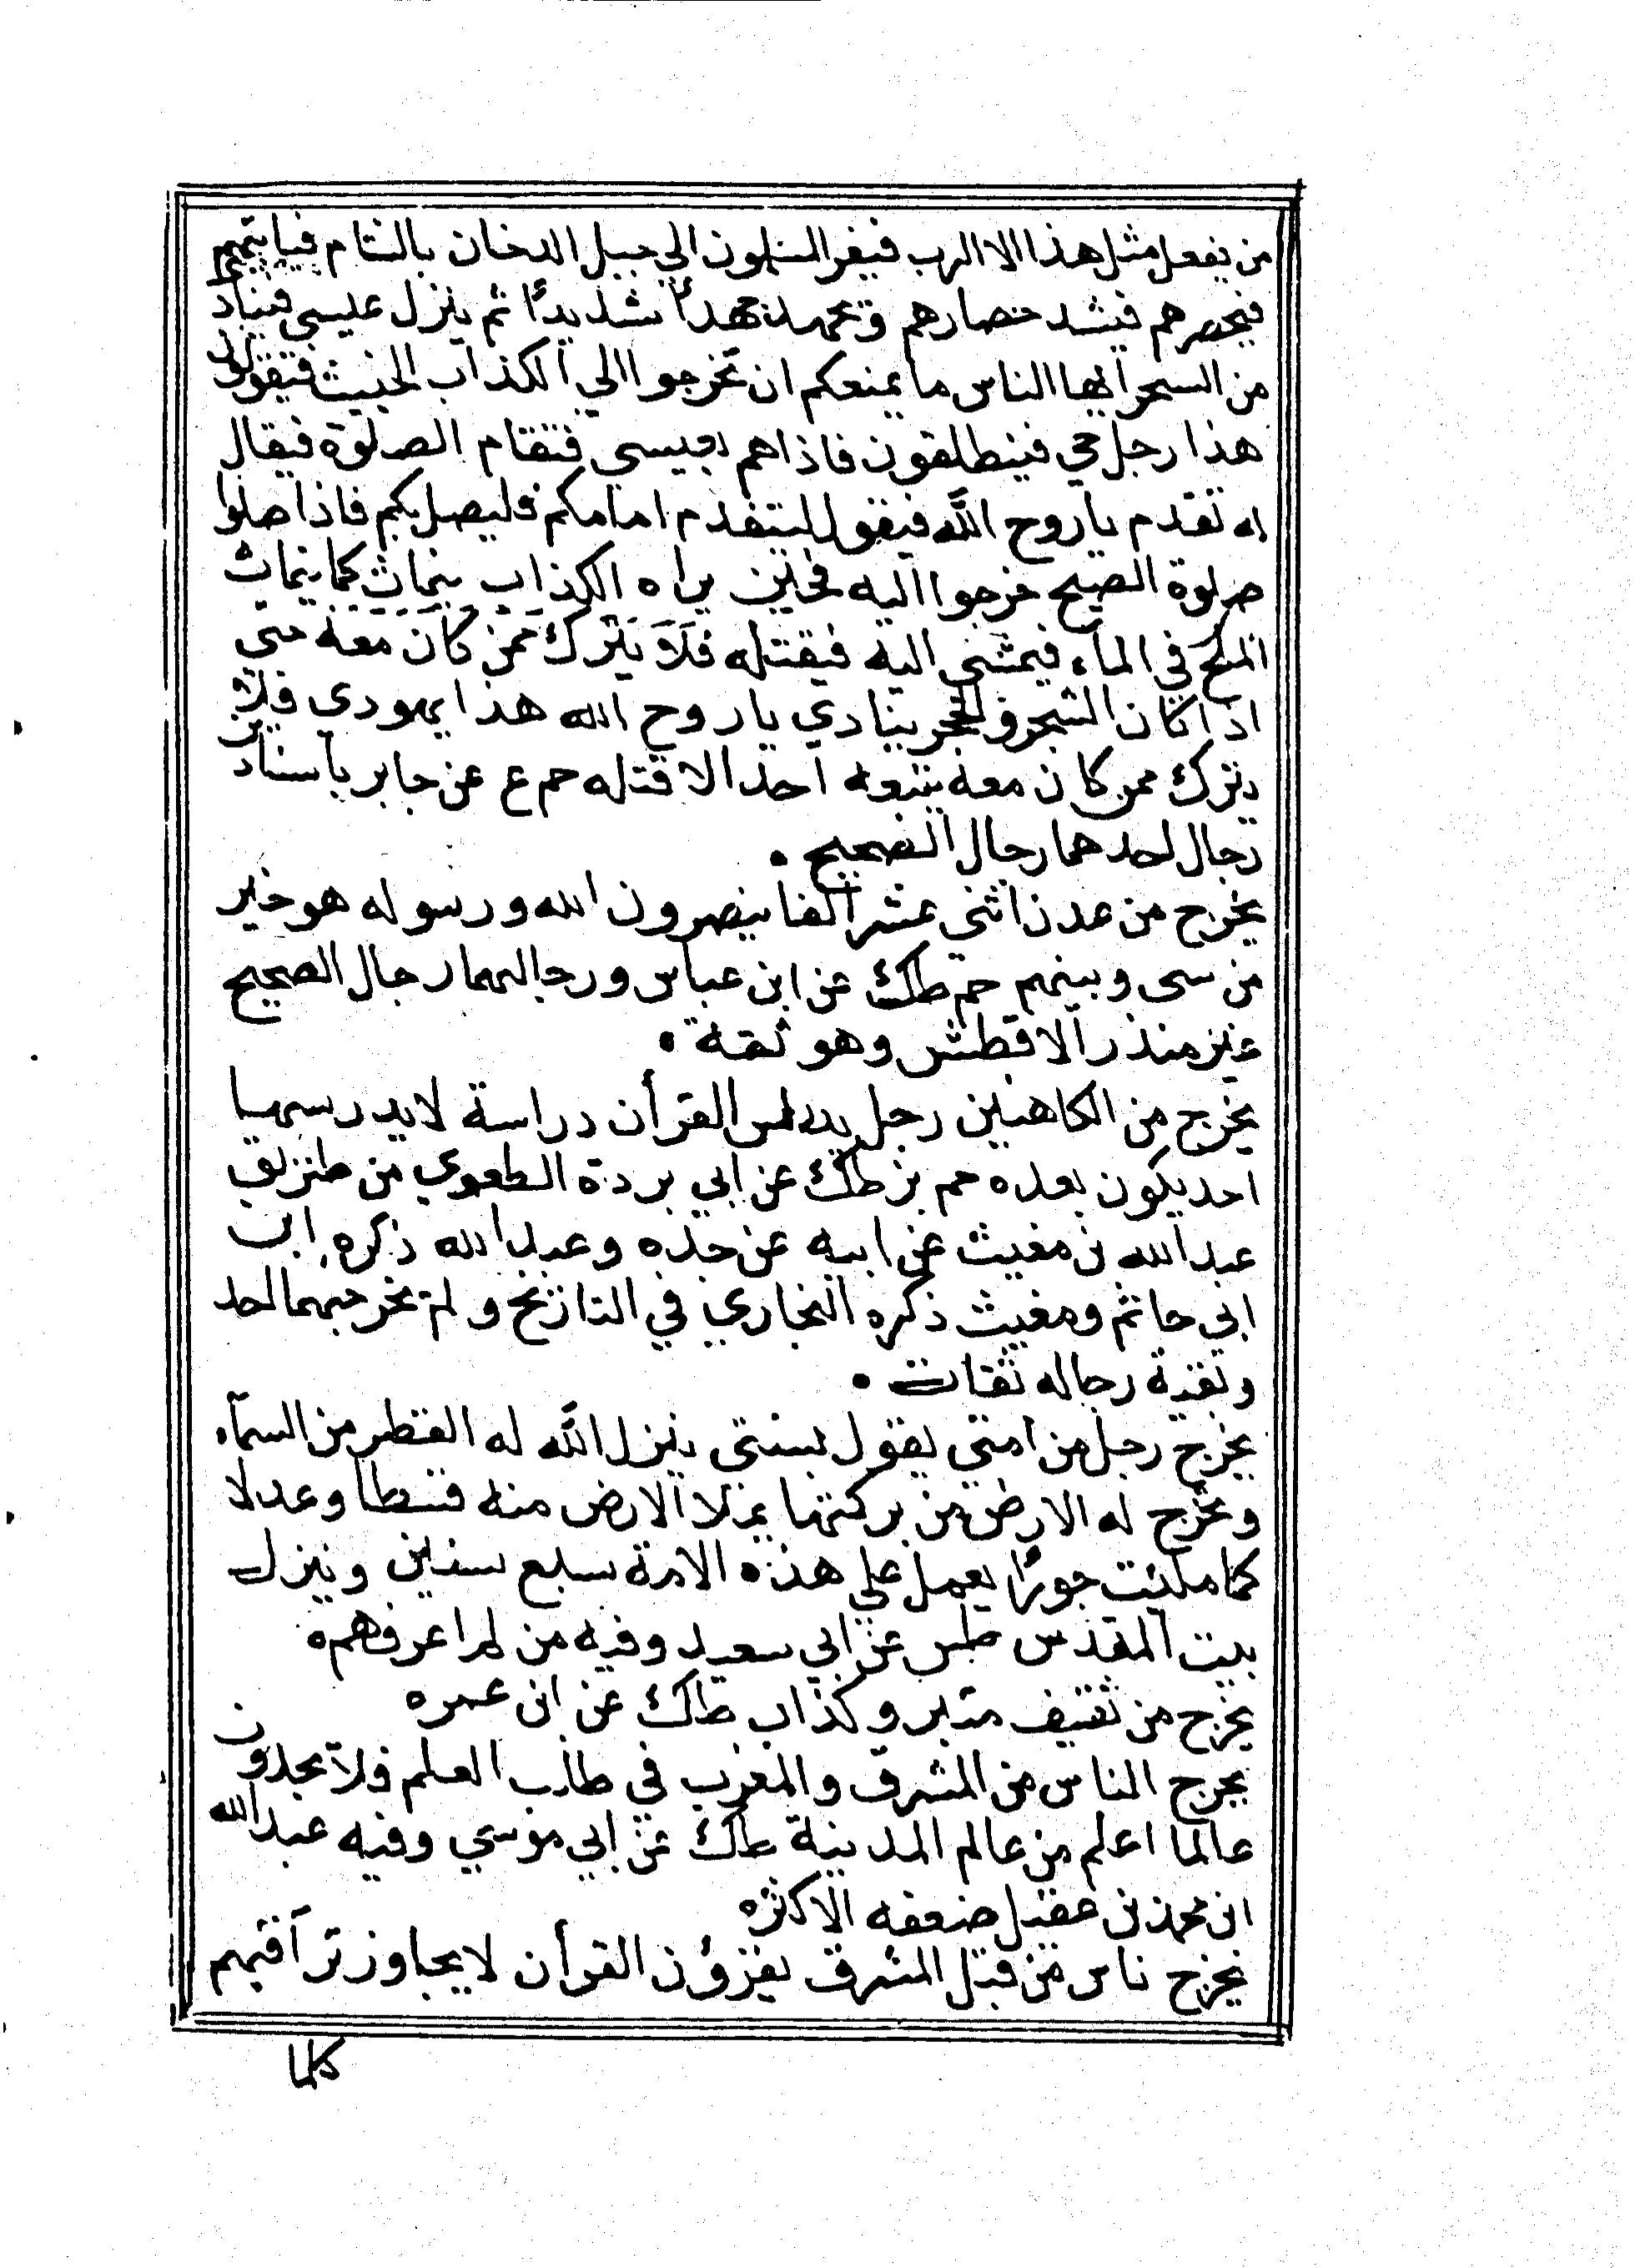 من يفعل مثل هذا الا الرب فيفر المسلمون الي جبل الدخان بالشام فياتيهم
فيحصرهم فيشد حصارهم ويجهدهم جهدًا شديدًا ثم ينزل عيسي فينادي
من السحر ايها الناس ما يمنعكم ان تخرجوا الي الكذاب الخبيث فيقولون
هذا رجل جي فينطلقون فاذاهم بعيسي فتقام الصلوة فيقال
له تقدم يا روح الله فيقول ليتقدم امامكم فليصل بكم فاذا صلوا
صلوة الصبح خرجوا اليه فحين يراه الكذاب ينماث كما ينماث
الملح في الماء فيمشي اليه فيقتله فلا يترك ممن كان معه حتي
اذا كان الشجر والحجر ينادي يا روح الله هذا يهودي فلا
يترك ممن كان معه يتبعه احدا الا قتله حم ع عن جابر باسنادين
رجال احدهما رجال الصحيح •
يخرج من عدن اثني عشر الفا ينصرون الله ورسوله هو خير
من بيني وبينهم حم طك عن ابن عباس ورجالهما رجال الصحيح
غير منذر الاقطش وهو ثقة •
يخرج من الكاهنين رجل يدرس القرأن دراسة لا يدرسها
احد يكون بعده حم بز طك عن ابي بردة الطعوي من طريق
عبد الله بن مغيث عن ابيه عن جده وعبد الله ذكره ابن
ابي حاتم ومغيث ذكره البخاري في التاريخ ولم يخرجهما احد
وبقية رجاله ثقات •
يخرج رجل من امتي يقول بسنتي ينزل الله له القطر من السمآء
وتخرج له الارض من بركتها يملا الارض منه قسطا وعدلا
كما ملئت جورًا يعمل علي هذه الامة سبع سنين وينزل
بيت المقدس طس عن ابي سعيد وفيه من لم اعرفهم ه
يخرج من ثقيف مبير وكذاب طك عن ابن عمر ه
يخرج الناس من المشرق والمغرب في طلب العلم فلا يجدون
عالما اعلم من عالم المدينة طك عن ابي موسي وفيه عبد الله
ابن محمد بن عقيل ضعفه الاكثر ه
يخرج ناس من قبل المشرق يقرؤن القرأن لا يجاوز تراقيهم
كلما